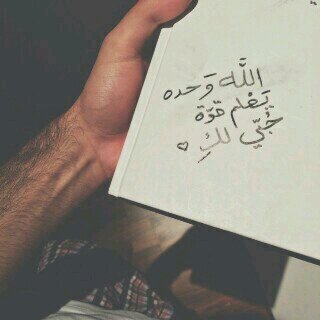 اللَّه وَحده
يَعْلم قوّة
حُبّي لكِ ♡